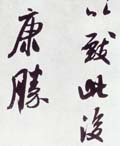 以此後
康勝